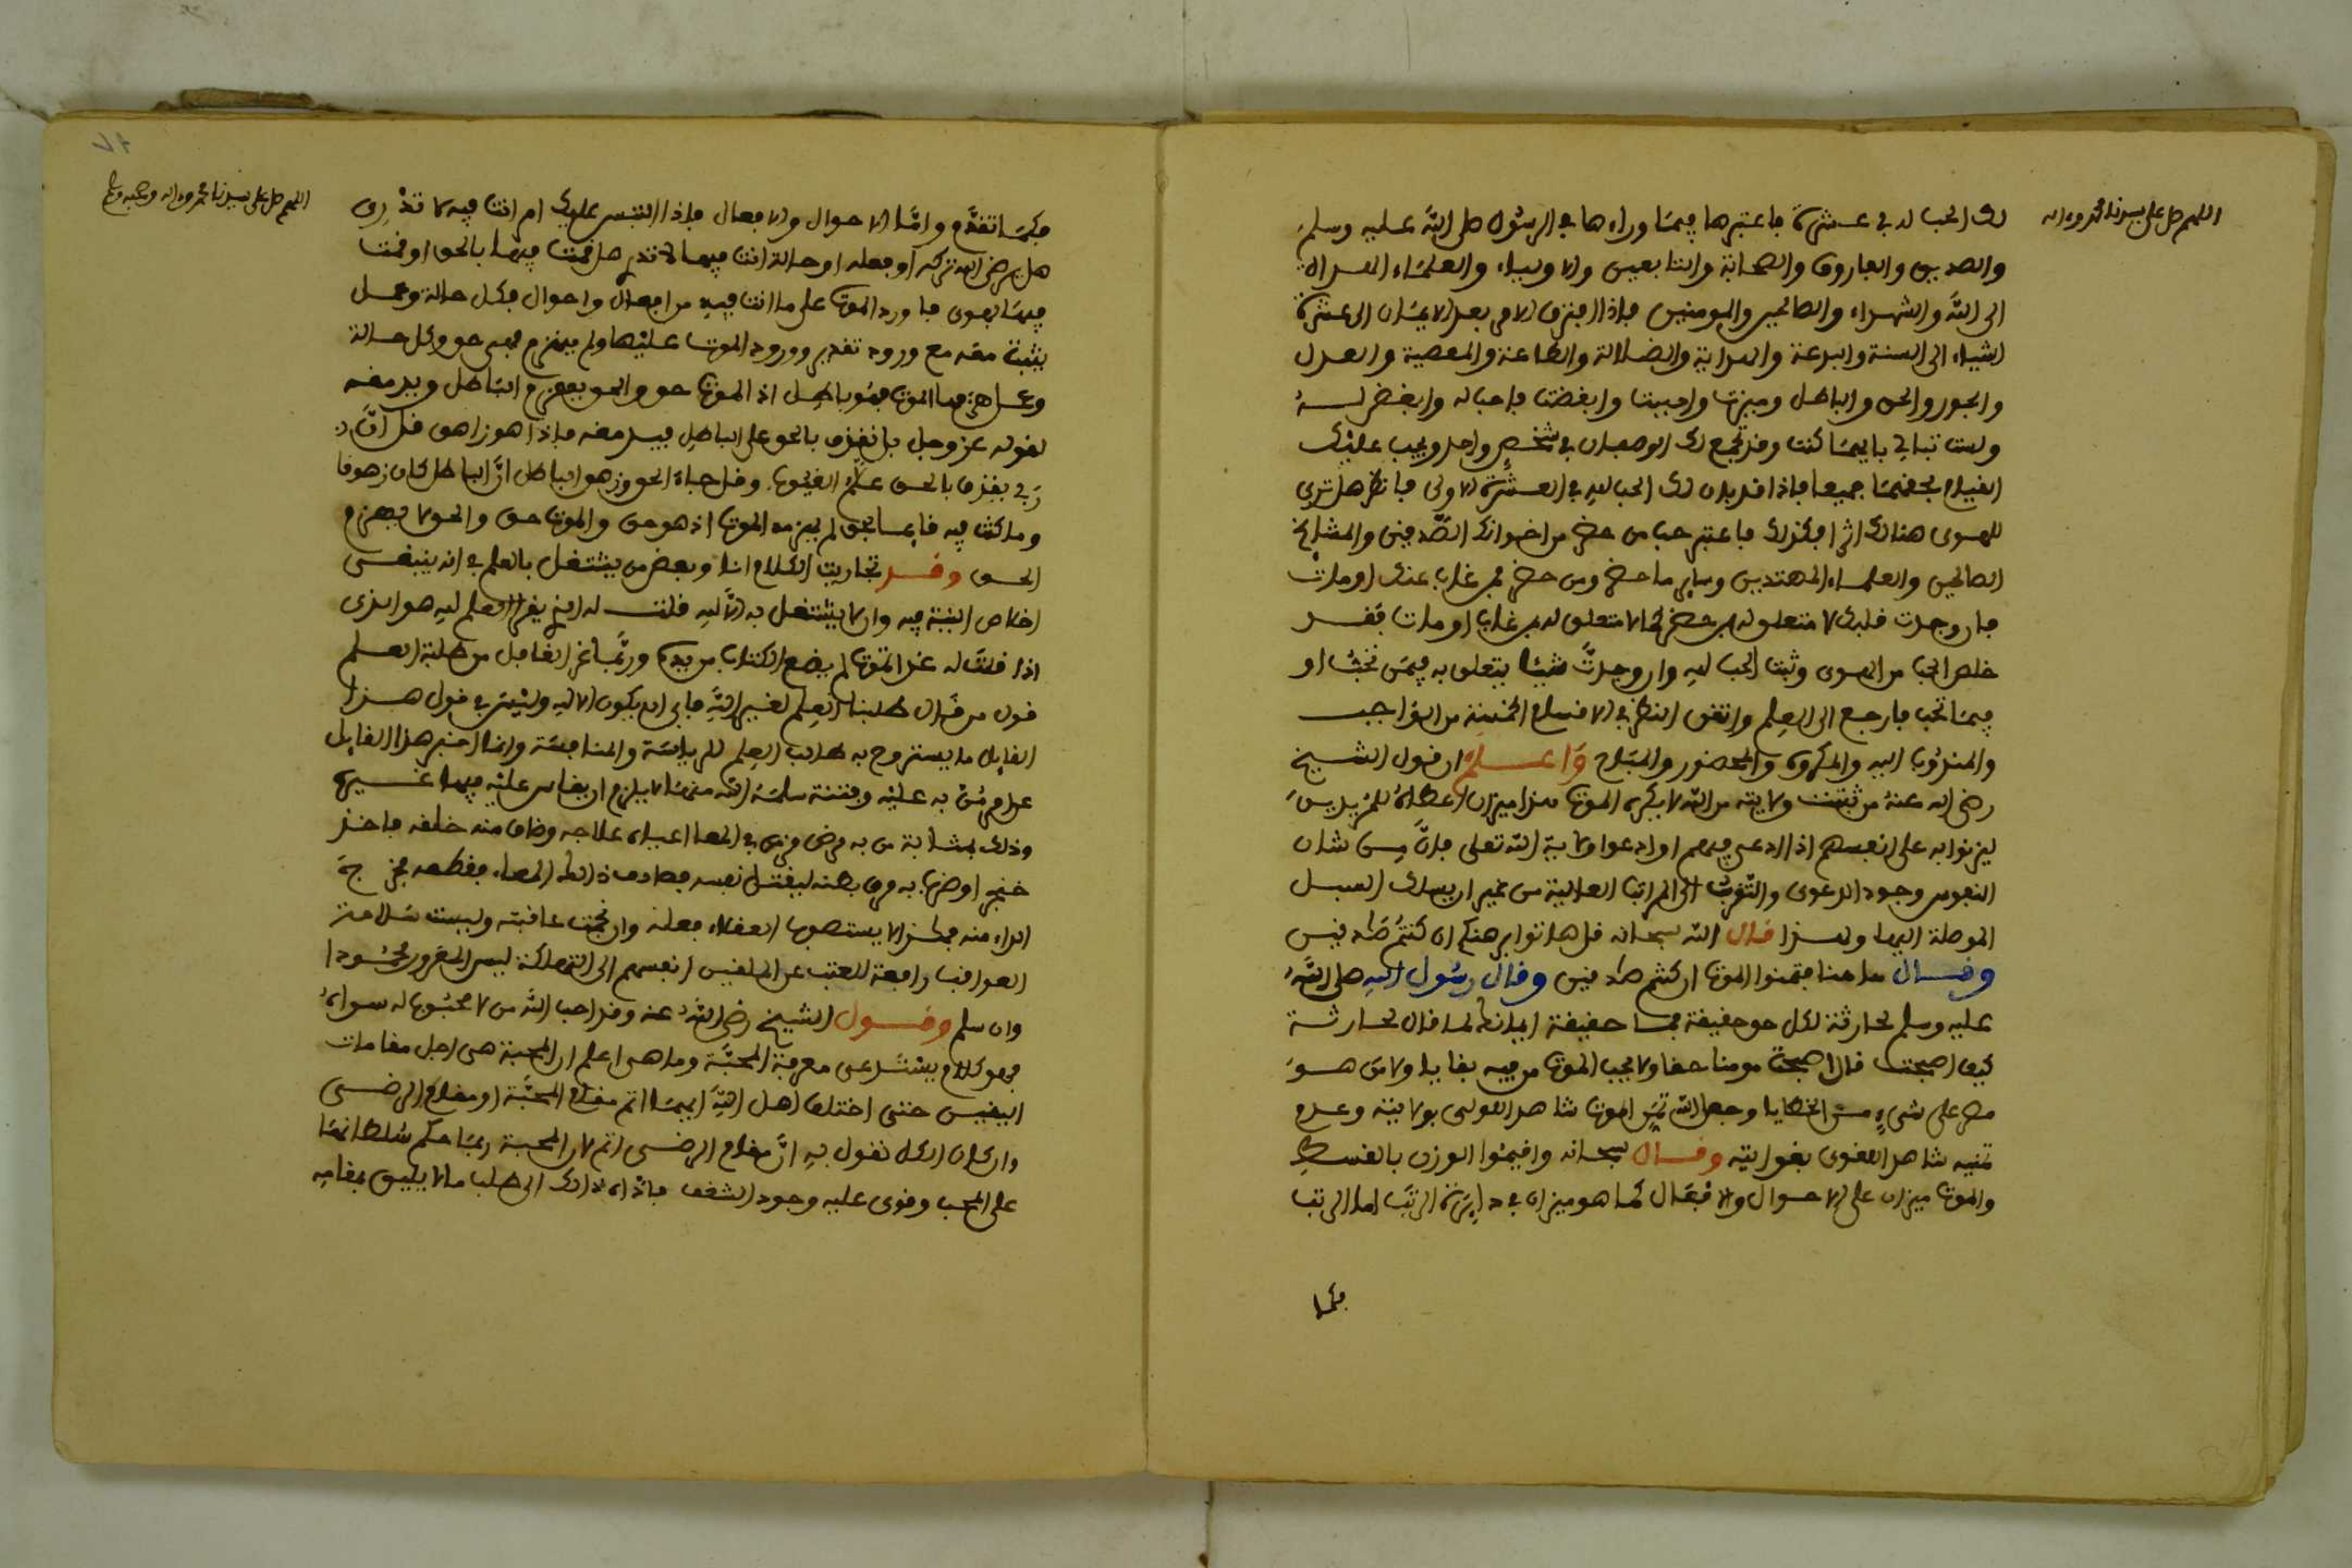 اللهم صل على سيدنا محمد وءاله
لك الحب له في عشرة فاعتبرها فيما وراءها في الرسول صلى الله عليه وسلم
والصديق والفاروق والصحابة والتابعين والاولياء والعلماء الهداة
الى الله والشهداء والصالحين والمومنين فاذا افترق الامر بعد الايمان الى عشرة
اشياء الى السنة والبدعة والهداية والضلالة والطاعة والمعصية والعدل
والجور والحق والباطل وميزت واحببت وابغضت فاحب له وابغض له
ولست تبالي بايهما كنت وقد يجمع لك الوصفان في شخص واحد ويجب عليك
القيام بحقهما جميعا فاذا قد بان لك الحب لله في العشرة الاولى فانظر هل ترى
للهوى هنالك اثرا فكذلك فاعتبر حب من حضر من اخوانك الصادقين والمشايخ
الصالحين والعلماء المهتدين وساير ما حضر ومن حضر ممن غاب عنك او مات
فان وجدت قلبك لا متعلق له بمن حضر كما لا متعلق له بمن غاب او مات فقد
خلص الحب من الهوى وثبت الحب لله وان وجدت شيئا يتعلق به فيمن تحب او
فيما تحب فارجع الى العلم واتقن النظر في الاقسام الخمسة من الواجب
والمندوب اليه والمكروه والمحضور والمباح واعلم ان قول الشيخ
رضي الله عنه من ثبتت ولايته من الله لا يكره الموت هذا ميزان اعطاه للمريدين
ليزنوا به على انفسهم اذا ادعى فيهم او ادعوا ولاية الله تعلى فان من شان
النفوس وجود الدعوى والتوثب الى المراتب العالية من غير ان يسلك السبيل
الموصلة اليها ولهذا قال الله سبحانه قل هاتوا برهنكم ان كنتم صادقين
وقال هاهنا فتمنوا الموت ان كنتم صادقين وقال رسول الله صلى الله
عليه وسلم لحارثة لكل حق حقيقة فما حقيقة ايمانك لما قال لحارثة
كيف اصبحت قال اصبحت مومنا حقا ولا يحب الموت من فيه بقايا ولا من هو
مصر على شيء من الخطايا وجعل الله تمني الموت شاهد للولي بولايته وعدم
تمنيه شاهد للغوي بغوايته وقال سبحانه واقيموا الوزن بالقسط
والموت ميزان على الاحوال والافعال كما هو ميزان في دائرة الرتب اما الرتب
فكما
اللهم صل على سيدنا محمد وءاله وصحبه وسلم
فكما تقدم واما الاحوال والافعال فاذا التبس عليك امر انت فيه لا تدري
هل يرضي الله تركه او فعله او حالة انت فيها لا تدري هل قمت فيها بالحق او قمت
فيها بهوى فاورد الموت على ما انت فيه من افعال واحوال فكل حالة وعمل
يثبت معه مع ورود تقدير وورود الموت عليها ولم ينهزم فهي حق وكل حالة
وعمل هزمها الموت فهو باطل اذ الموت حق والحق يهزم الباطل ويدمغه
لقوله عز وجل بل نقذف بالحق على الباطل فيدمغه فاذا هو زاهق قل ان
ربي يقذف بالحق علام الغيوب وقل جاء الحق وزهق الباطل ان الباطل كان زهوقا
وما كنت فيه قائما بحق لم يهزمه الموت اذ هو حق والموت حق والحق لا يهزم
الحق وقد تجاريت الكلام انا وبعض من يشتغل بالعلم في انه ينبغي
اخلاص النية فيه وان لا يشتغل به الا لله فقلت له الذي يقرا العلم لله هو الذي
اذا قلت له غدا تموت لم يضع الكتاب من يده وربما غر الغافل من طلبة العلم
قول من قال طلبنا العلم لغير الله فابى ان يكون الا لله وليس في قول هذا
القايل ما يستروح به طالب العلم للرياسة والمنافسة وانما اخبر هذا القايل
عن امر من به عليه وفتنة سلمه الله منها لا يلزم ان يقاس عليه فيها غيره
وذلك بمثابة من به مرض مزمن في المعا اعياه علاجه وضاق منه خلقه فاخذ
خنجرا وضرب به مراق بطنه ليقتل نفسه فصادف ذلك المعا فقطعه فخرج
الداء منه فهذا لا يستصوب العقلاء فعله وان نجحت عاقبته وليست سلامة
العواقب رافعة للعتب عن الملقين انفسهم الى التهلكة ليس المغرور محمودا
وان سلم وقول الشيخ رضي الله عنه وقد احب الله من لا محبوب له سواه
فهو كلام يستدعي معرفة المحبة وما هي اعلم ان المحبة هي اجل مقامات
اليقين حتى اختلف اهل الله ايهما اتم مقام المحبة او مقام الرضى
وان كان الذي نقول به ان مقام الرضى اتم لان المحبة ربما حكم سلطانها
على المحب وقوى عليه وجود الشغف فاداه ذلك الى طلب ما لا يليق بمقامه